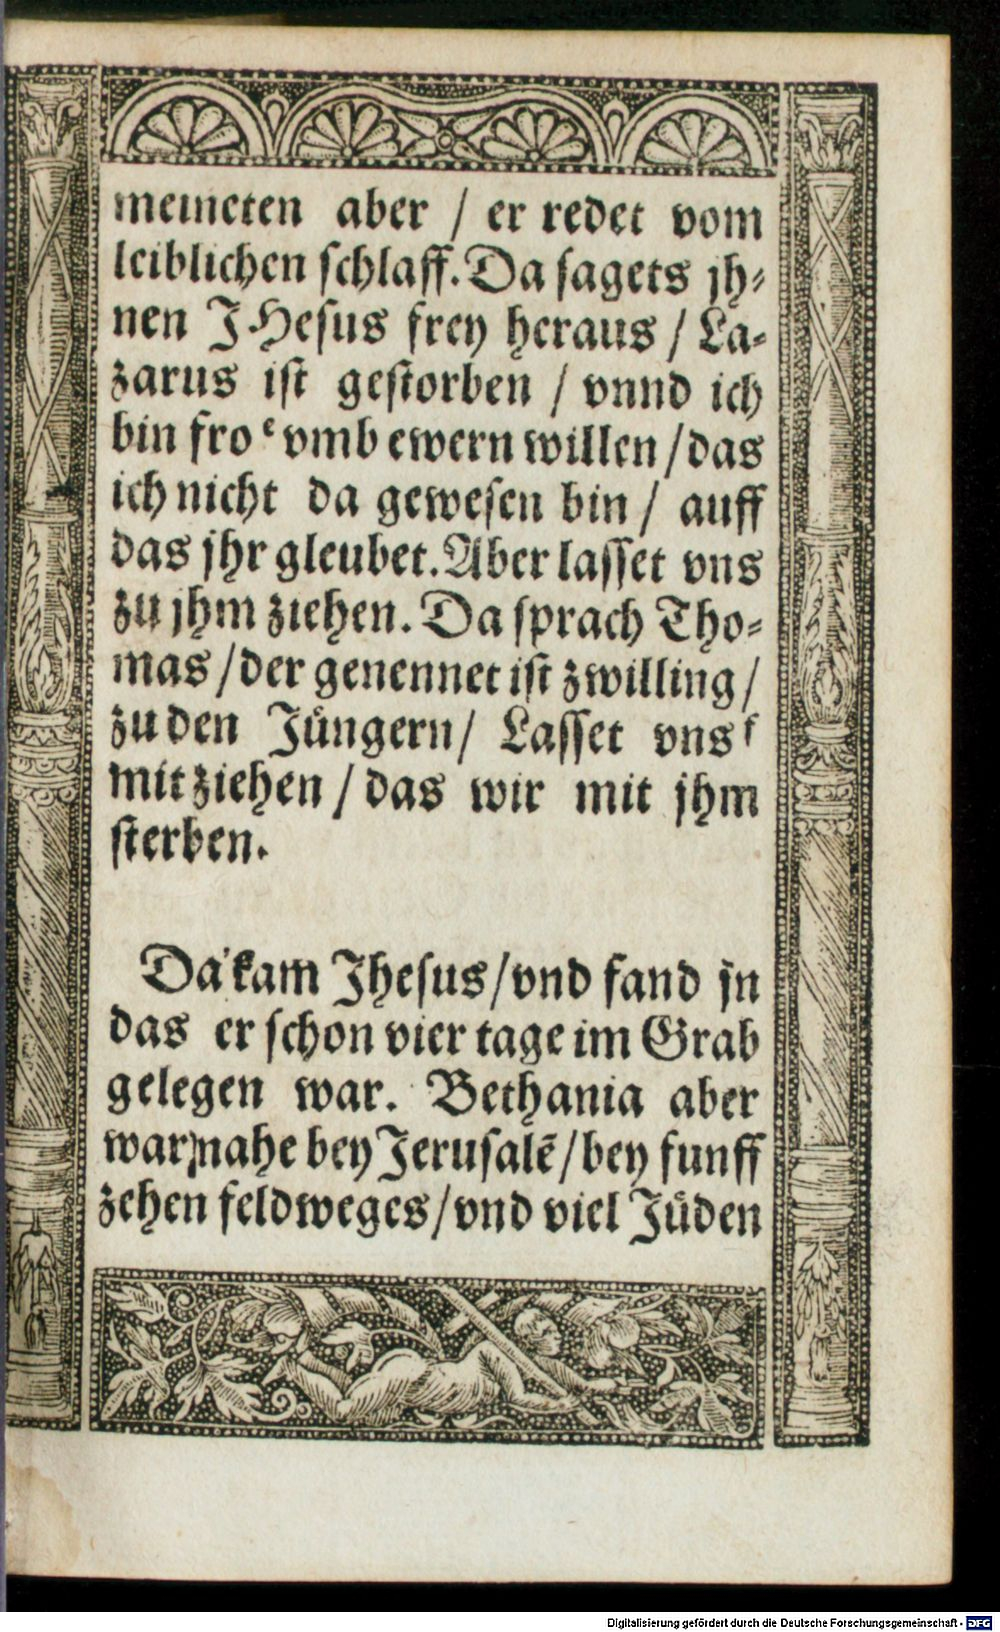 meineten aber / er redet vom
leiblichen schlaff. Da sagets jh-
nen JHesus frey heraus / La-
zarus ist gestorben / vnnd ich
bin fro vmb ewern willen / das
ich nicht da gewesen bin / auff
das jhr gleubet. Aber lasset vns
zu jhm ziehen. Da sprach Tho-
mas / der genennet ist zwilling /
zu den Jüngern / Lasset vns
mit ziehen / das wir mit jhm
sterben.
Da kam Jhesus / vnd fand jn
das er schon vier tage im Grab
gelegen war. Bethania aber
war nahe bey Jerusalē / bey funff
zehen feldweges / vnd viel Jüden
Digitalisierung gefördert durch die Deutsche Forschungsgemeinschaft - DFG